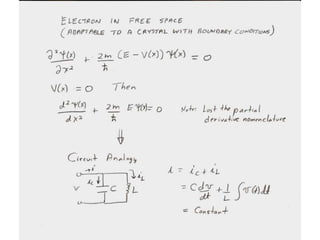 ELECTRON IN FREE SPACE
(ADAPTABLE TO A CRYSTAL WITH BOUNDARY CONDITIONS)
∂²Ψ(x)/∂x² + 2m/ħ (E - V(x)) Ψ(x) = 0
V(x) = 0 Then
d²Ψ(x)/dx² + 2m/ħ EΨ(x) = 0 Note: Lost the partial
derivative nomenclature
⇓
Circuit Analogy
→i
v ic↓ C L ↓iL
i = ic + iL
= C dv/dt + 1/L ∫ v(t) dt
= Constant